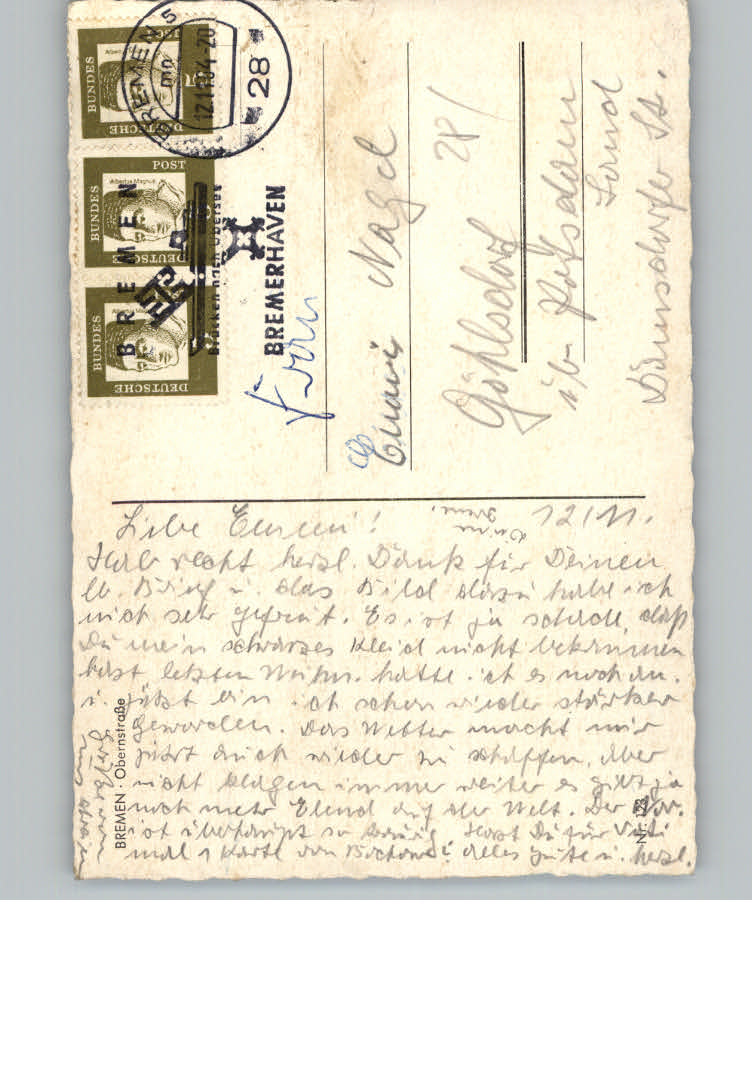 DEUTSCHE BUNDESPOST
Albertus Magnus
DEUTSCHE BUNDESPOST
Albertus Magnus
DEUTSCHE BUNDES
BREMEN 5
12.11.64-20
28
BREMEN
Brücken nach Übersee
BREMERHAVEN
Frau
Emmi Nagel
28/
Göhlsdorf
i/b Potsdam
Land
Damsdorfer St.
12/11.
Liebe Emmi!
Hab recht herzl. Dank für Deinen
lb. Brief u. das Bild dazu habe ich
mich sehr gefreut. Es ist ja schade, daß
Du mein schwarzes Kleid nicht bekommen
hast letzten Weihn. hatte ich es noch an.
u. jetzt bin ich schon wieder stärker
geworden. Das Wetter macht mir
jetzt auch wieder zu schaffen, aber
nicht klagen immer weiter es gibt ja
noch mehr Elend auf der Welt. Der Nov.
ist überhaupt so traurig Hast Du für
mal 1 Karte von alles Gute u. herzl.
Deine
BREMEN · Obernstraße
Nr. 123